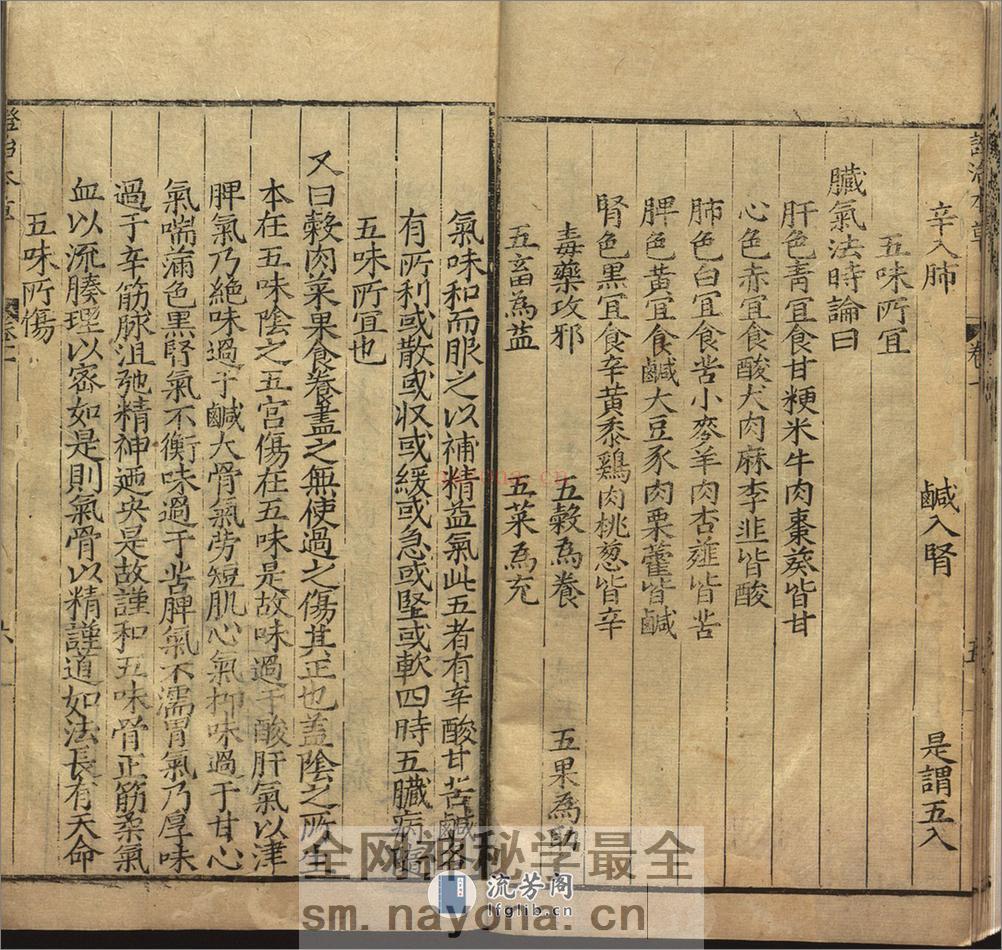 辛入肺 鹹入腎 是謂五入
五味所宜
臟氣法時論曰
肝色青宜食甘粳米牛肉棗葵皆甘
心色赤宜食酸犬肉麻李韭皆酸
肺色白宜食苦小麥羊肉杏薤皆苦
脾色黃宜食鹹大豆豕肉栗藿皆鹹
腎色黑宜食辛黃黍鷄肉桃葱皆辛
毒藥攻邪 五榖為養 五果為助
五畜為益 五菜為充
氣味和而服之以補精益氣此五者有辛酸甘苦鹹各
有所利或散或収或緩或急或堅或軟四時五臟病隨
五味所宜也
又曰榖肉菜果食養盡之無使過之傷其正也蓋陰之所生
本在五味陰之五宮傷在五味是故味過于酸肝氣以津
脾氣乃絶味過于鹹大骨氣勞短肌心氣抑味過于甘心
氣喘滿色黑腎氣不衡味過于苦脾氣不濡胃氣乃厚味
過于辛筋脉沮弛精神廼央是故謹和五味骨正筋柔氣
血以流腠理以密如是則氣骨以精謹道如法長有天命
五味所傷
全网神秘学最全
sm.nayona.cn
流芳阁
lfglib.cn